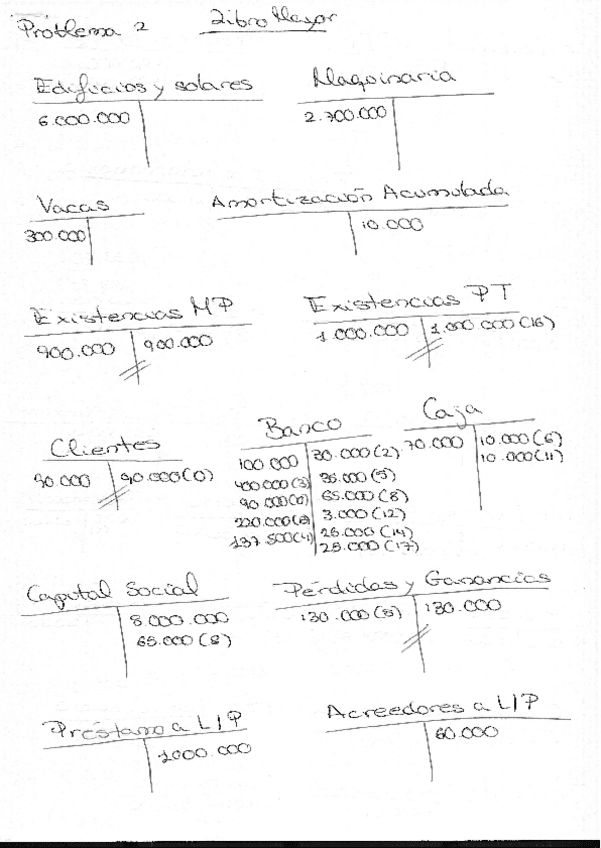 Problema 2 Libro Mayor
Edificios y solares Maquinaria
6.000.000 2.700.000
Vacas Amortización Acumulada
300.000 10.000
Existencias MP Existencias PT
900.000 900.000 1.000.000 1.000.000 (16)
Clientes Banco Caja
90.000 90.000 (0) 100.000 30.000 (2) 70.000 10.000 (6)
400.000 (3) 35.000 (5) 10.000 (11)
90.000 (0) 65.000 (8)
220.000 3.000 (12)
137.500 (4) 26.000 (14)
25.000 (17)
Capital Social Pérdidas y Ganancias
8.000.000 130.000 (8) 130.000
65.000 (8)
Préstamo a L/P Acreedores a L/P
1000.000 60.000